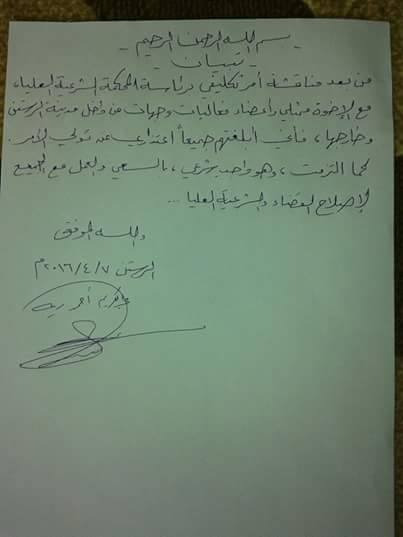 - بسم الله الرحمن الرحيم -
- تبيان -
من بعد مناقشة أمر تكليفي برئاسة المحكمة الشرعية العليا،
مع الإخوة ممثلي وأعضاء فعاليات وجهات من داخل مدينة الرستن
وخارجها، فإني أبلغتهم جميعاً اعتذاري عن تولي الأمر.
كما التزمت، وهو واجب شرعي، بالسعي والعمل مع الجميع
لإصلاح القضاء والشرعية العليا ...
والله الموفق
الرستن ٢٠١٦/٤/٧م
أحمد